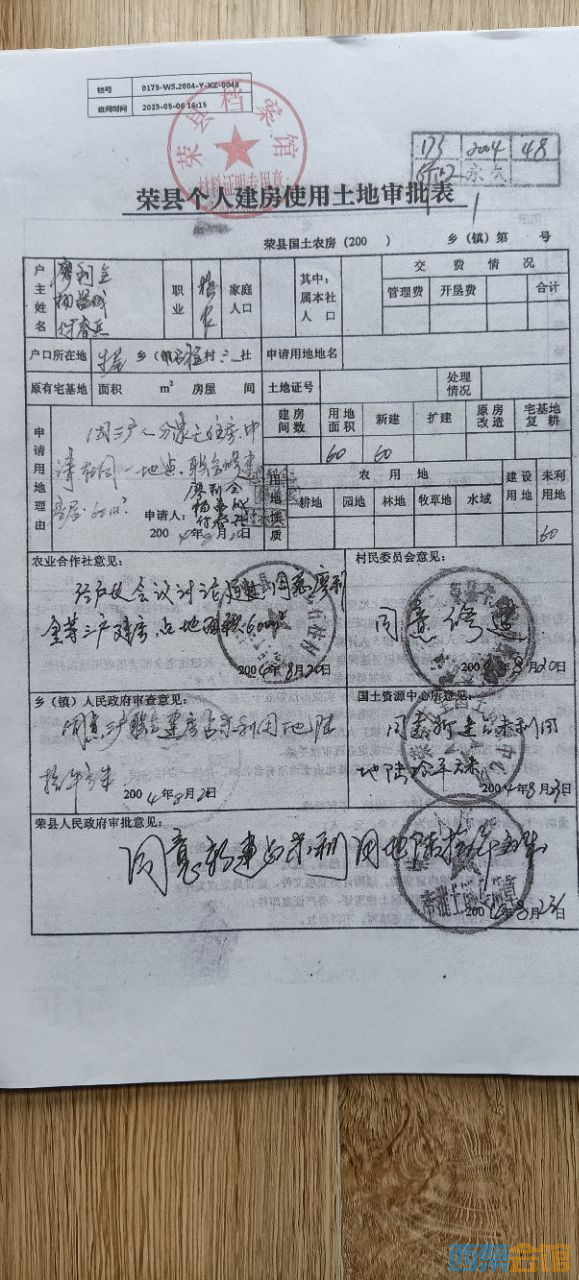 档号 0175-WS.2004-Y-XZ-0048
查阅时间 2023-05-06 16:15
荣县档案馆
材料证明专用章
173 2004 48
永久
荣县个人建房使用土地审批表
荣县国土农房（200 ）乡（镇）第 号
户主姓名 廖利全
职业 务农
家庭人口
其中：属本社人口
交费情况
管理费 开垦费 合计
户口所在地 乡（镇） 村 社
申请用地地名
原有宅基地 面积 m² 房屋 间
土地证号
处理情况
申请用地理由
因三户人分家无住房，申
请在同一地点，联合修建
房屋60m²
申请人：廖利全
2004年8月20日
建房间数 用地面积 新建 扩建 原房改造 宅基地复耕
60 60
用地性质
农用地 建设用地 未利用地
耕地 园地 林地 牧草地 水域
60
农业合作社意见：
经户代会议讨论通过，同意廖利
全等三户建房占地面积60m²
2004年8月20日
村民委员会意见：
同意修建
2004年8月20日
乡（镇）人民政府审查意见：
同意三户联合建房占未利用地陆
拾平方米
2004年8月2 日
国土资源中心房意见：
同意新建占未利用
地陆拾平方米
2004年8月23日
荣县人民政府审批意见：
同意新建占未利用地陆拾平方米
审批工作专用章
2004年8月23日